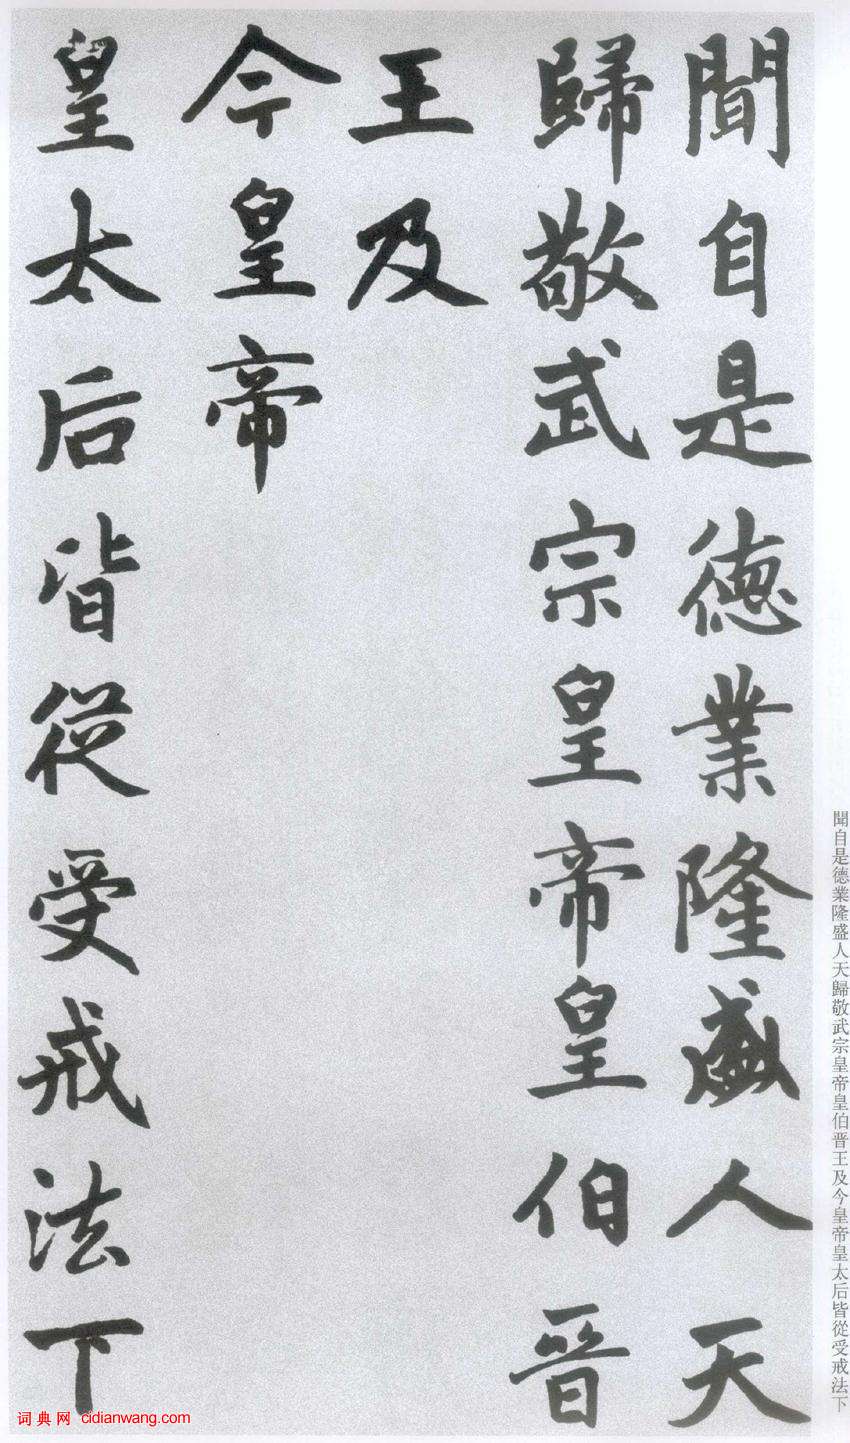 聞自是德業隆盛人天
歸敬武宗皇帝皇伯晋
王及
今皇帝
皇太后皆從受戒法下
聞自是德業隆盛人天歸敬武宗皇帝皇伯晋王及今皇帝皇太后皆從受戒法下
词典网 cidianwang.com